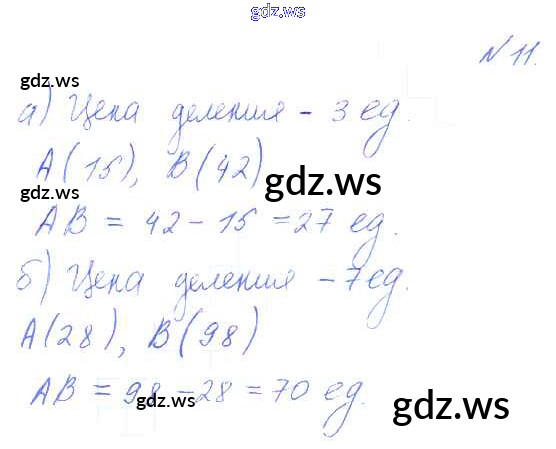 gdz.ws
N 11.
gdz.ws
а) Цена деления - 3 ед.
А(15), В(42)
gdz.ws gdz.ws
АВ = 42 - 15 = 27 ед.
б) Цена деления - 7 ед.
А(28), В(98)
АВ = 98 - 28 = 70 ед.
gdz.ws gdz.ws